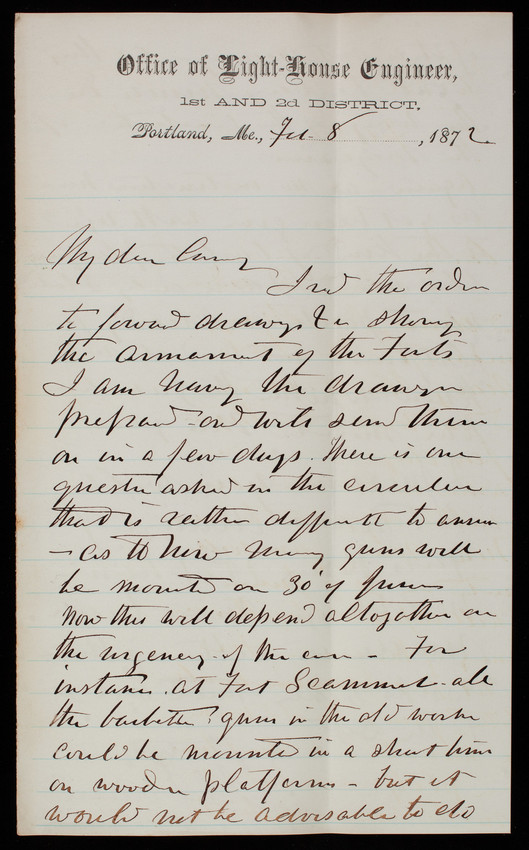 Office of Light-House Engineer,
1st AND 2d DISTRICT.
Portland, Me., Feb 8, 1872
My dear Casey
I recd the order
to forward drawings &c showing
the armament of the Forts
I am having the drawings
prepared and will send them
on in a few days. There is one
question asked in the circular
that is rather difficult to answer
– as to how many guns will
be mounted on 30
Now this will depend altogether on
the urgency of the case – For
instance at Fort Scammel all
the barbette guns in the old work
could be mounted in a short time
on wooden platforms – but it
would not be advisable to do